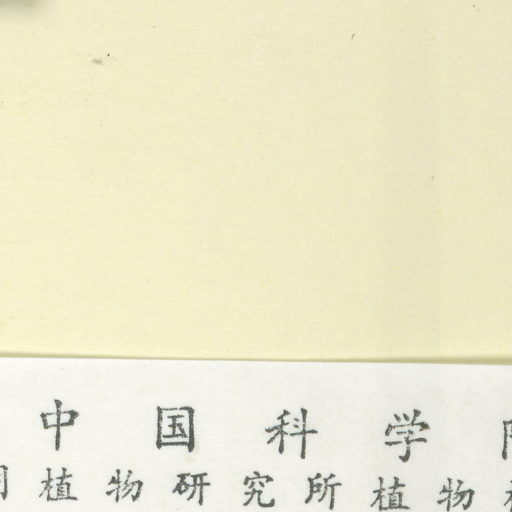 中国科学
植物研究所植物